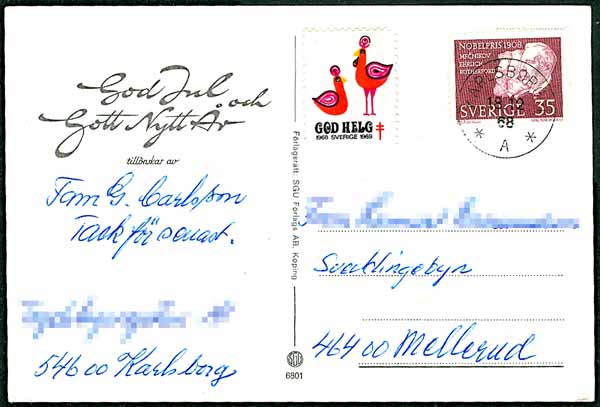 God Jul
och
Gott Nytt År
tillönskar av
Fam G. Carlsson
Tack för senast.
546 00 Karlsborg
Förlagsrätt. SGU Förlags AB, Köping
SGU
6801
GOD HELG
1968 SVERIGE 1969
NOBELPRIS 1908
MECNIKOV
EHRLICH
RUTHERFORD
SVERIGE 35
18.12
68
* A *
Fam
464 00 Mellerud